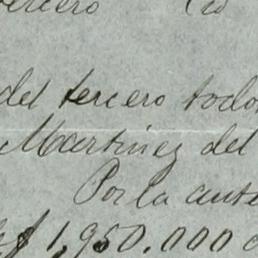 tercero
del tercero todos
Martinez del
Por la ante
1,950.000